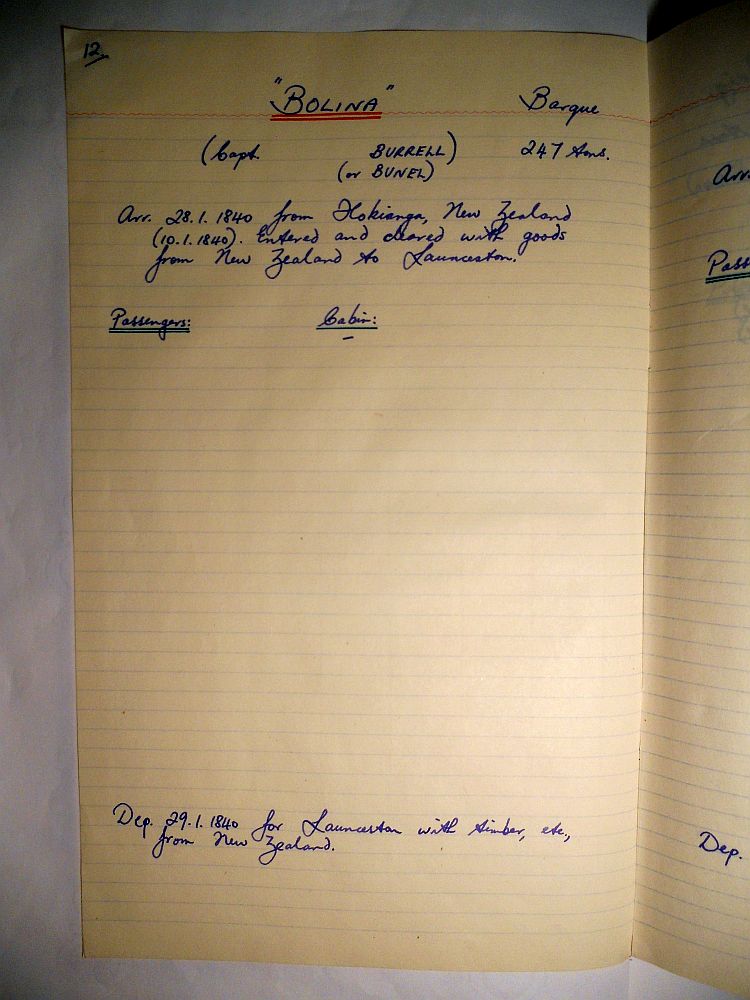 12.
"BOLINA" Barque
(Capt. BURRELL) 247 tons.
(or BUNEL)
Arr. 28.1.1840 from Hokianga, New Zealand
(10.1.1840). Entered and cleared with goods
from New Zealand to Launceston.
Passengers: Cabin:
-
Dep. 29.1.1840 for Launceston with timber, etc.,
from New Zealand.
Arr.
Pass
Dep.